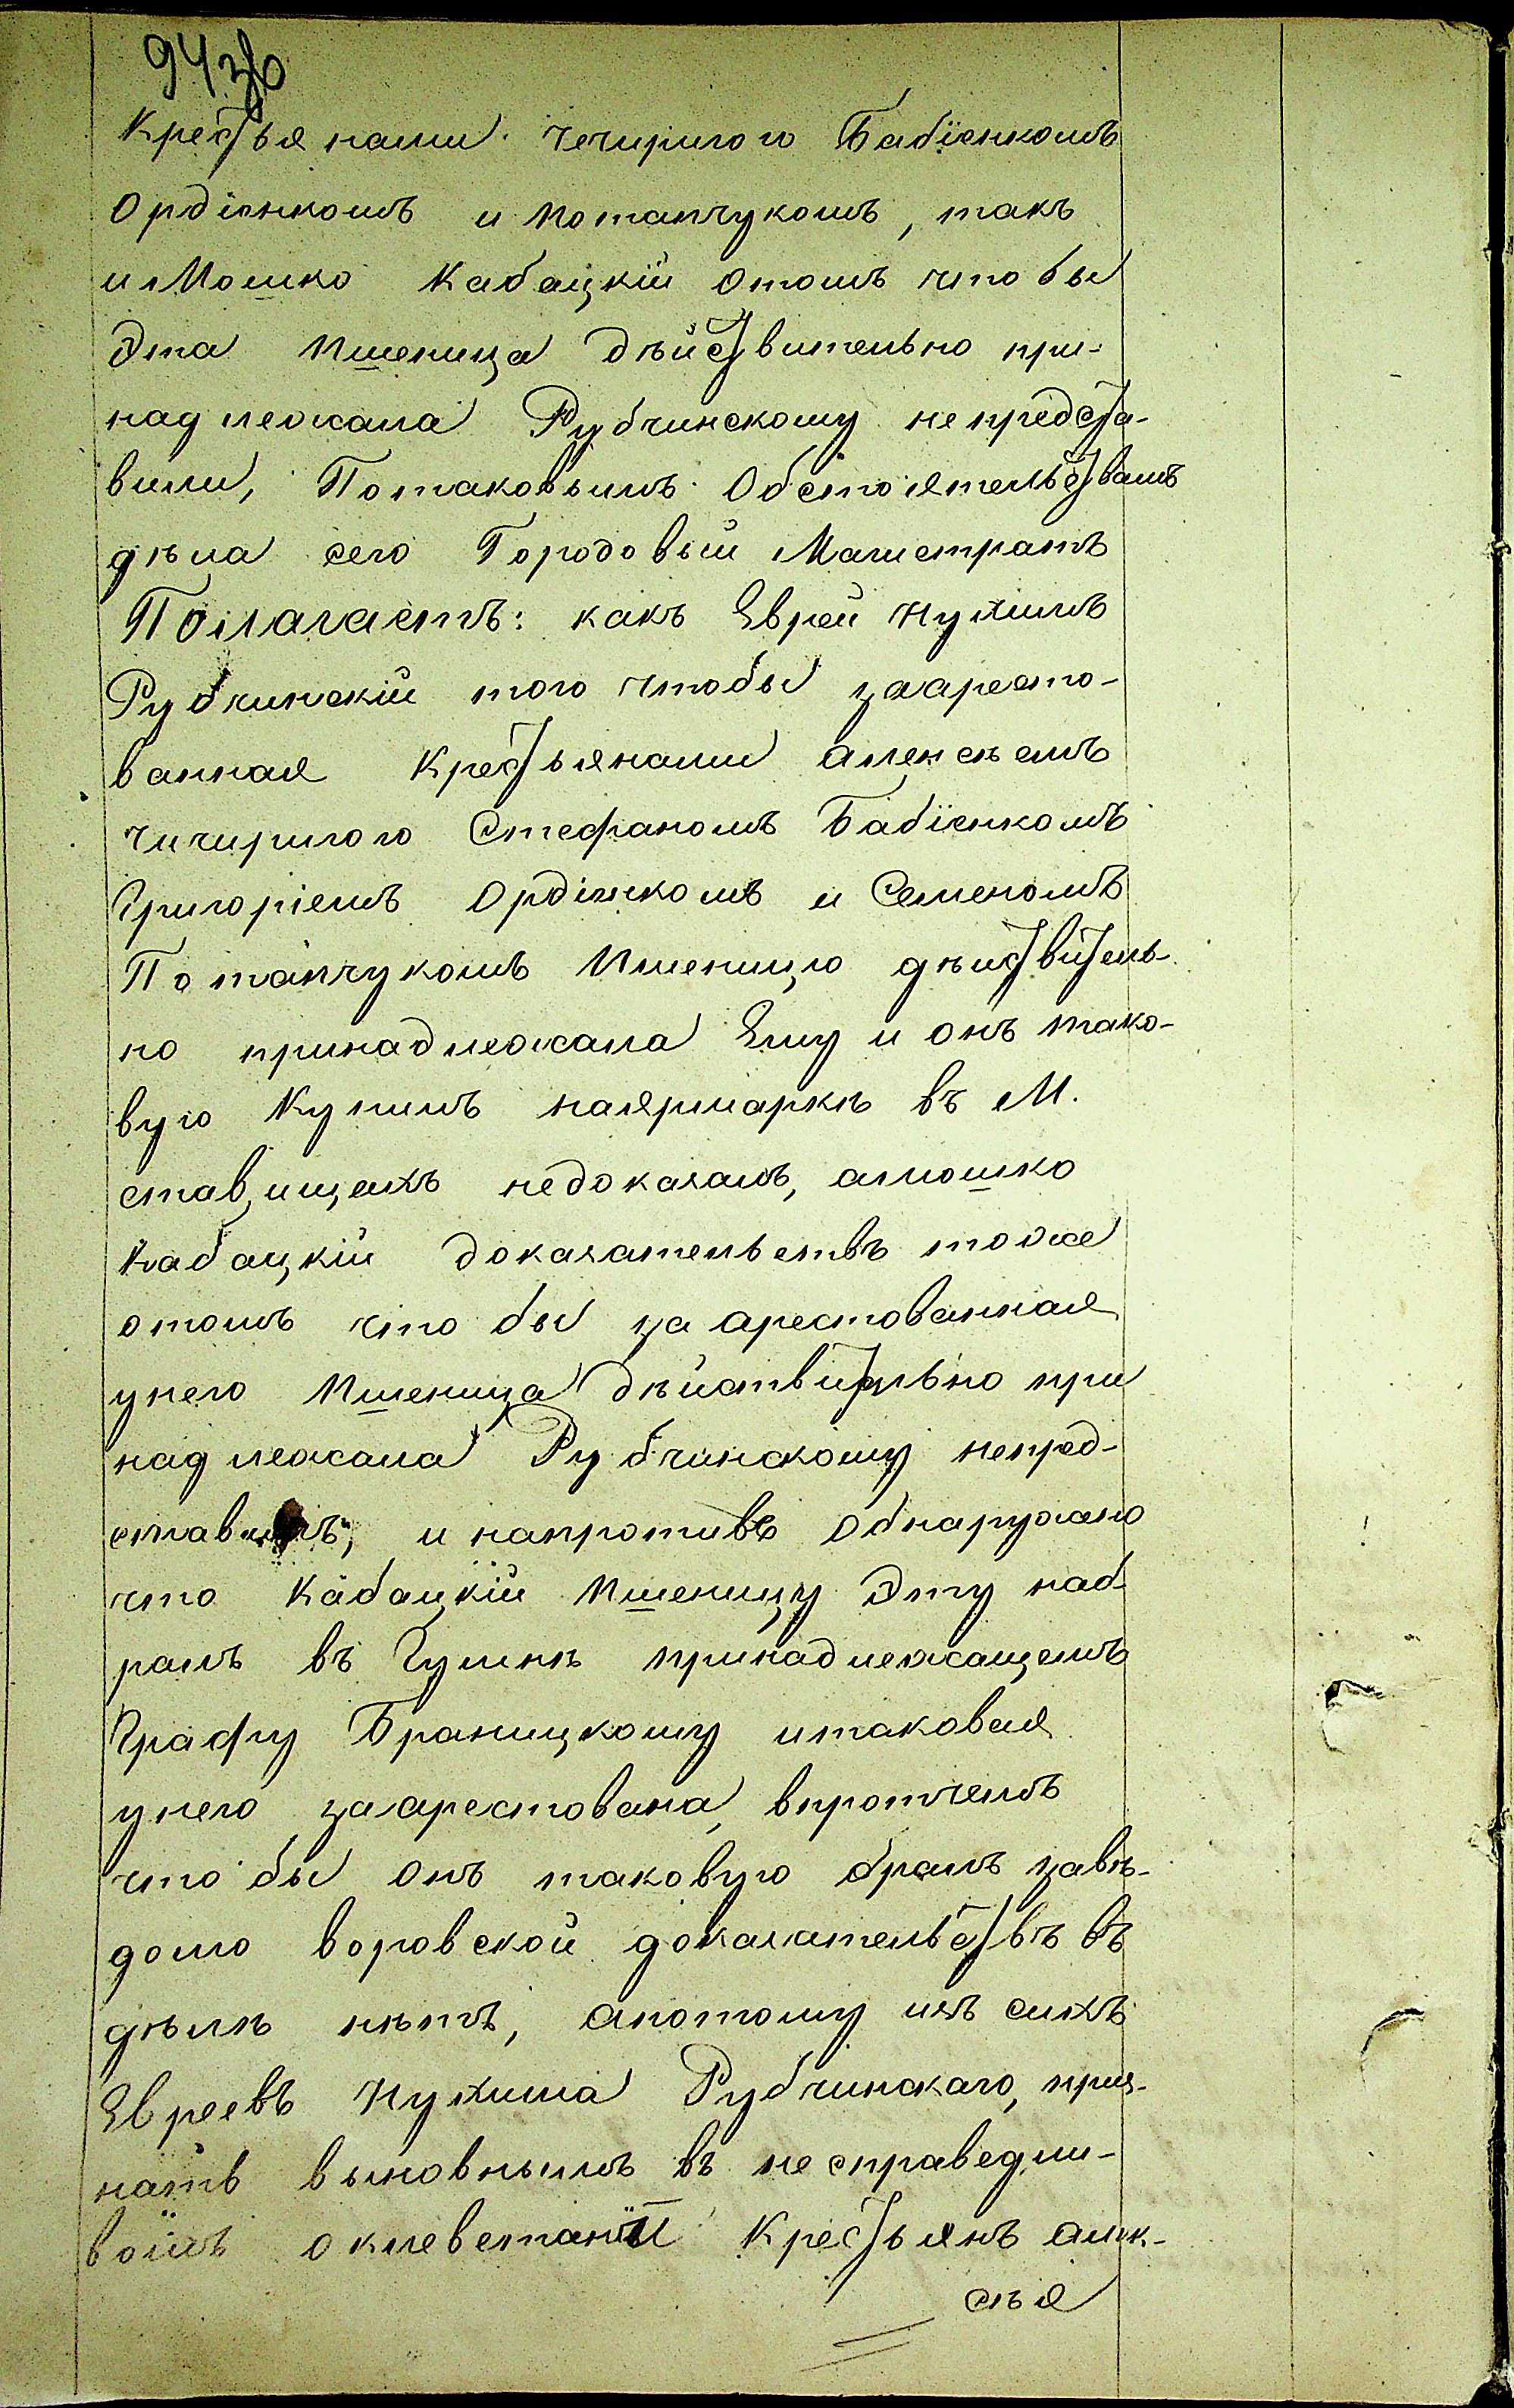 94зв
Крестьянами Чечирилого Бабіенкомъ
Ордіенкомъ и Потапчукомъ, такъ
и Мошко Кабацкій отомъ что бы
Эта Пшеница дѣйствительно при-
надлежала Рубчинскому непредста-
вили, Потаковымъ Обстоятельствамъ
дѣла сего Городовый Магистратъ
Полагаетъ: какъ Еврей Нухимъ
Рубчинскій того чтобы зааресто-
ванная Крестьянами Алексѣемъ
Чичирилого Стефаномъ Бабіенкомъ
Григоріемъ Ордіенкомъ и Семеномъ
Потапчукомъ Пшеницю дѣиствитель-
но принадлежала Ему и онъ тако-
вую Купилъ наярмаркѣ въ М.
ставищахъ недоказалъ, амошко
Кабацкій доказательствъ тоже
отомъ что бы за арестованная
унего Пшеница дѣйствительно при
надлежала Рубчинскому непред-
ставилъ, и напротивъ Обнаружено
что Кабацкій Пшеницу Эту наб-
ралъ въ Гумнѣ принадлежащемъ
Графу Браницкому итаковая
унего заарестована, впротчемъ
что бы Онъ таковую бралъ завѣ-
домо воровской доказательствъ въ
дѣлѣ нѣтъ, апотому изъ сихъ
Евреевъ Нухима Рубчинскаго, приз-
нать выновнымъ въ несправедли-
вомъ оклеветаніи Крестьянъ Алек-
сѣя